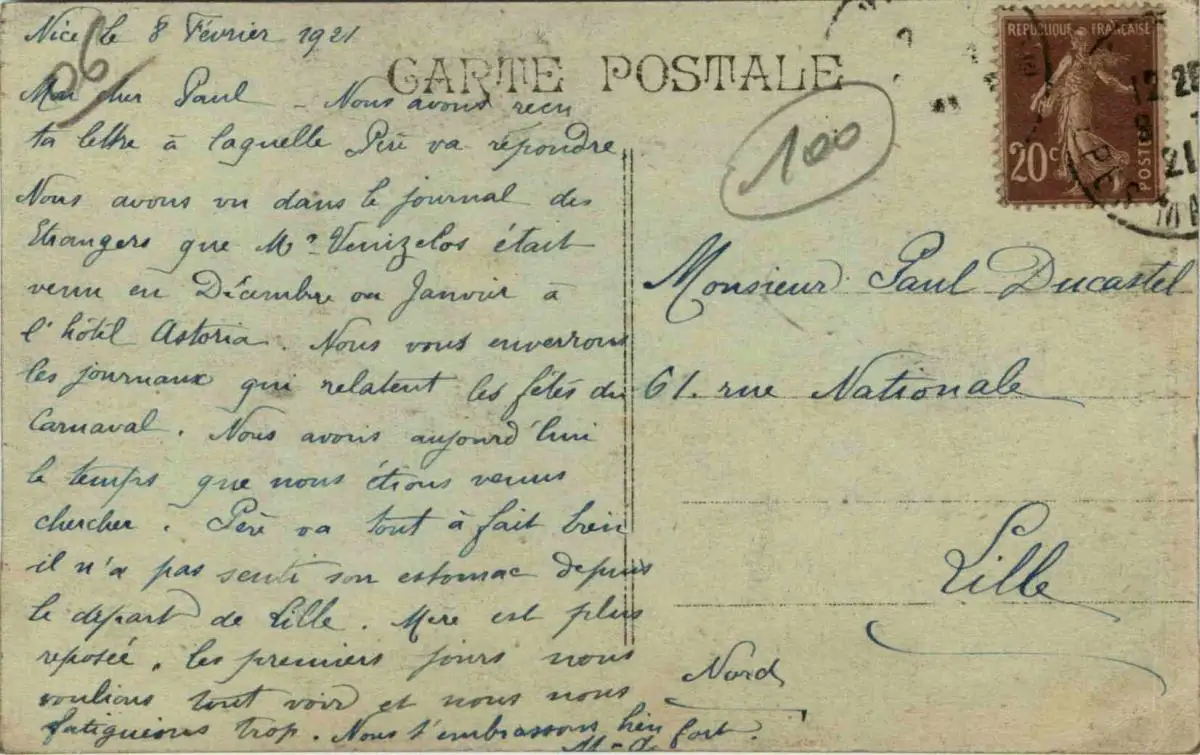 Nice le 8 Février 1921
06
CARTE POSTALE
Mon cher Paul - Nous avons reçu
ta lettre à laquelle Père va répondre
Nous avons vu dans le journal des
Etrangers que Mr Venizelos était
venu en Décembre ou Janvier à
l'hôtel Astoria. Nous vous enverrons
les journaux qui relatent les fêtes du
Carnaval. Nous avons aujourd'hui
le temps que nous étions venus
chercher. Père va tout à fait bien
il n'a pas senti son estomac depuis
le départ de Lille. Mère est plus
reposée, les premiers jours nous
voulions tout voir et nous nous
fatiguions trop. Nous t'embrassons bien
fort.
100
REPUBLIQUE FRANÇAISE
20c
POSTES
12 25
8
21
Monsieur Paul Ducastel
61. rue Nationale
Lille
Nord